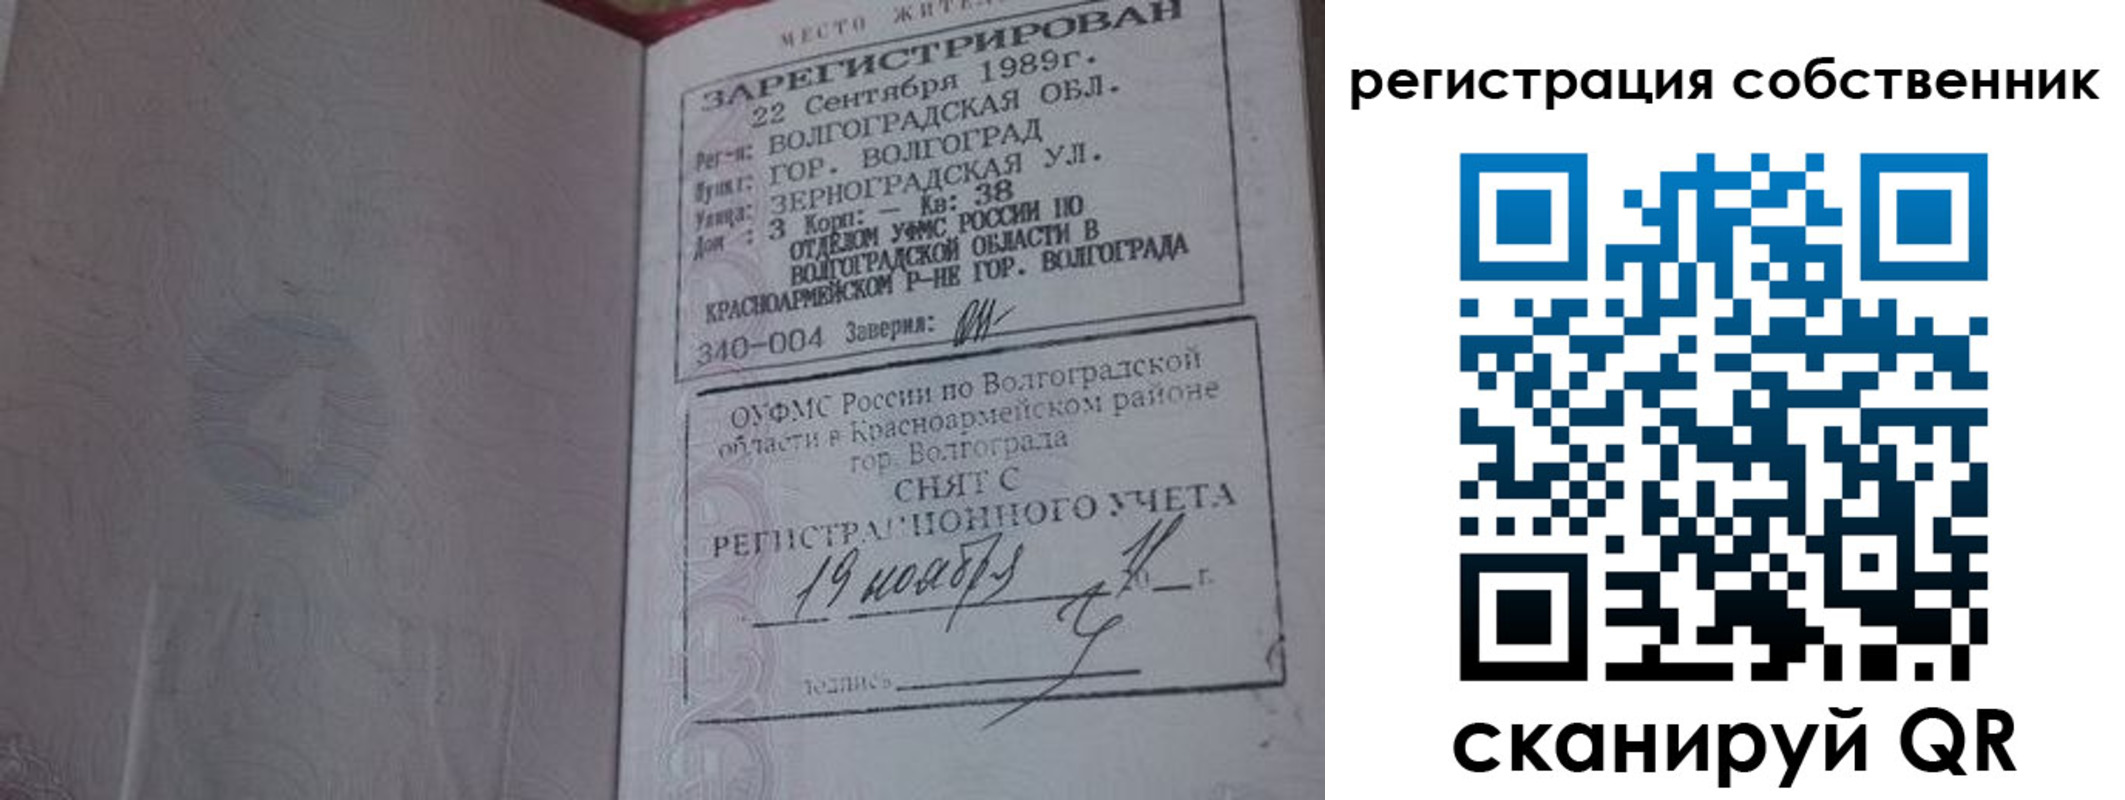 МЕСТО
ЗАРЕГИСТРИРОВАН
22 Сентября 1989г.
Рег-н: ВОЛГОГРАДСКАЯ ОБЛ.
Пункт: ГОР. ВОЛГОГРАД
Улица: ЗЕРНОГРАДСКАЯ УЛ.
Дом : 3 Корп: — Кв: 38
ОТДЕЛОМ УФМС РОССИИ ПО
ВОЛГОГРАДСКОЙ ОБЛАСТИ В
КРАСНОАРМЕЙСКОМ Р-НЕ ГОР. ВОЛГОГРАДА
340-004 Заверил:
ОУФМС России по Волгоградской
области в Красноармейском районе
гор. Волгограда
СНЯТ С
РЕГИСТРАЦИОННОГО УЧЕТА
19 ноября 20 г.
подпись
регистрация собственник
сканируй QR